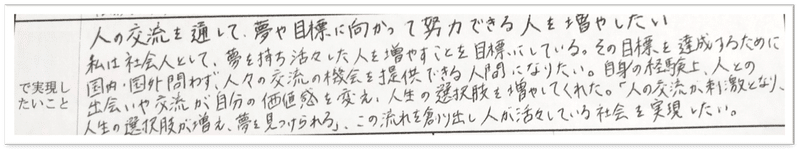 人の交流を通して、夢や目標に向かって努力できる人を増やしたい
私は社会人として、夢を持ち活々した人を増やすことを目標にしている。その目標を達成するために
国内・国外問わず、人々の交流の機会を提供できる人間になりたい。自身の経験上、人との
出会いや交流が自分の価値感を変え、人生の選択肢を増やしてくれた。「人の交流が刺激となり、
人生の選択肢が増え、夢を見つけられる」、この流れを創り出し人が活々している社会を実現したい。
で実現し
たいこと